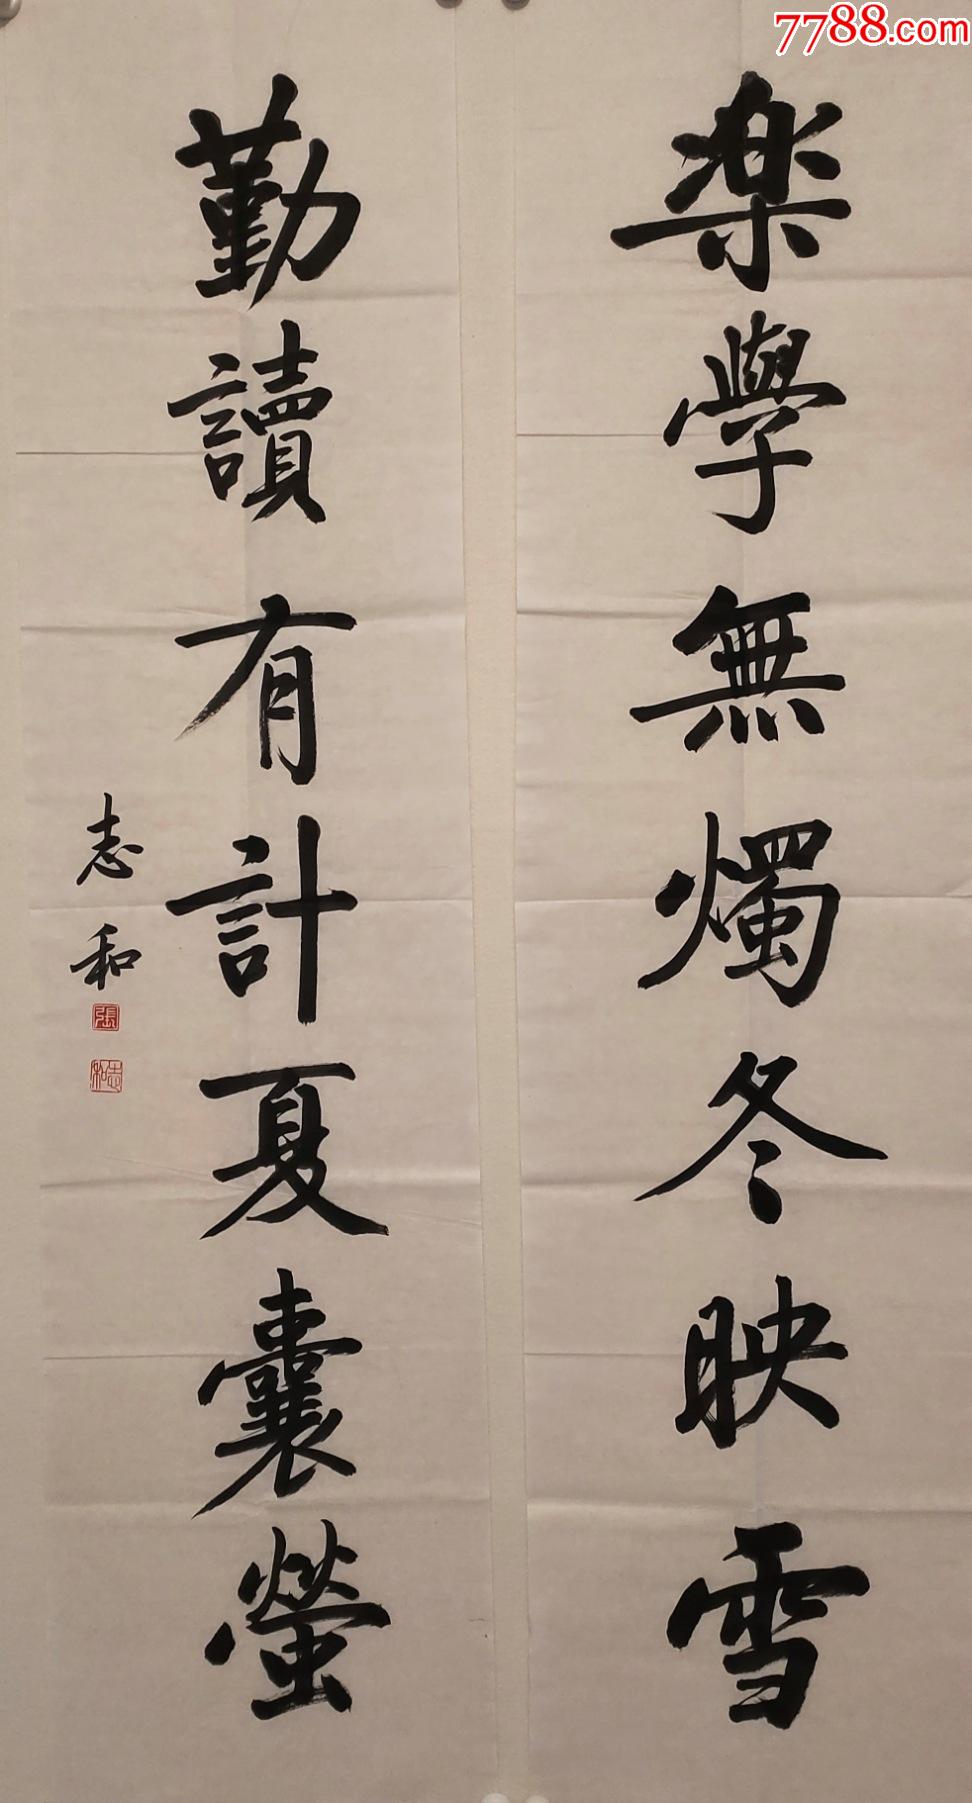 7788.com
楽學無燭冬映雪
勤讀有計夏囊螢
志和
張
志和